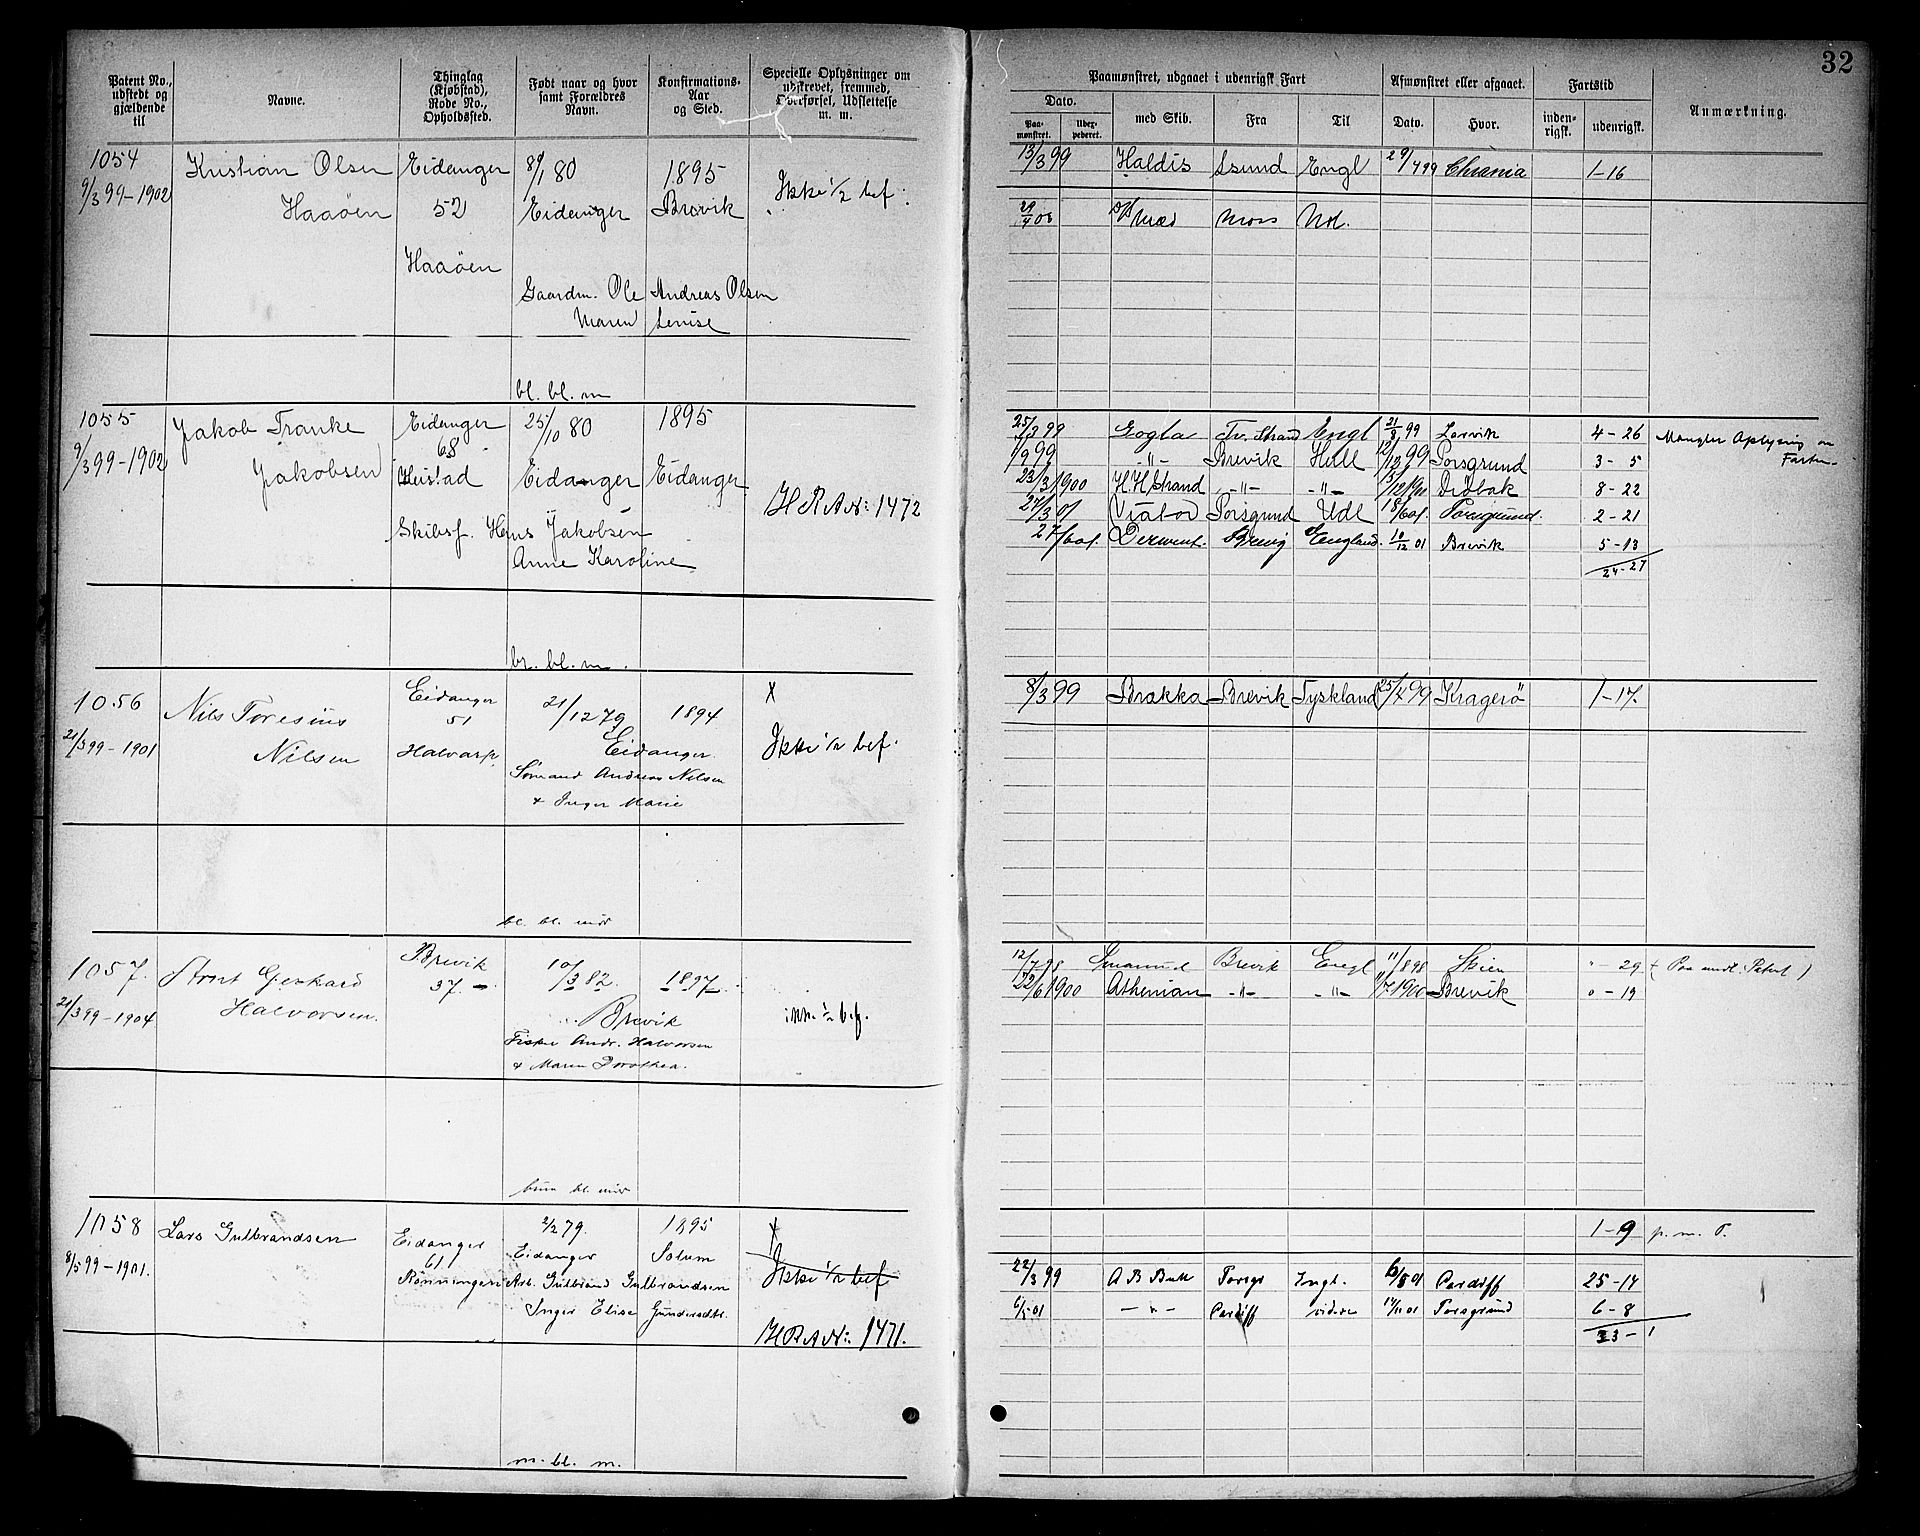 32
Patent No., udstedt og gjældende til
Navne.
Thinglag (Kjøbstad), Rode No., Opholdssted.
Født naar og hvor samt Forældres Navn.
Konfirmations- Aar og Sted.
Specielle Oplysninger om udskrevet, fremmed, Overførsel, Udslettelse m. m.
Paamønstret, udgaaet i udenrigsk Fart
Afmønstret eller afgaaet.
Fartstid
Anmærkning.
Dato.
Paa- mønstret.
med Skib.
Fra
Til
Dato.
Hvor.
inden- rigsk.
udenrigsk.
1054 Kristian Olsen Eidanger 8/1 80 1895
9/3 99-1902 Haaöen 52 Eidanger Brevik Ikke 1/2 bef.
Haaöen
Gaardm. Ole Andreas Olsen
Maren
bl. bl. m
13/3 99 Haldis Engl 29/4 99 Chrania 1-16
Moss Udl.
1055 Jakob Franke Eidanger 25/10 80 1895
9/3 99-1902 Jakobsen 68 Eidanger Eidanger
H R A N: 1472
Skibsf. Hans Jakobsen
Anne Karoline
br. bl. m.
25/3 99 Tv. Strand Engl 21/8 99 Larvik 4-26 Mangler Oplysning om Farten
1/9 99 -"- Brevik Hull 12/12 99 Porsgrund 3-5
23/3 1900 H.H. Strand -"- -"- 8-22
27/3 01 Viator Porsgrund Udl 18/6 01. Porsgrund. 2-21
27/6 01. Derwent. Brevig England. 10/12 01 Brevik 5-13
24-27
1056 Nils Toresius Eidanger 21/12 79 1894 x
21/3 99-1901 Nilsen 51 Eidanger. Ikke 1/2 bef.
Halvarp.
Sömand Andreas Nilsen
+ Inger Marie
bl. bl. mid
8/3 99 Brakka Brevik Tyskland 25/4 99 Kragerö 1-17.
1057. Arnt Gerhard Brevik 10/3 82 1897
21/3 99-1904 Halvorsen. 37 Brevik ikke 1/2 bef.
Fisker Andr. Halvorsen
+ Maren Dorothea.
brun bl. mid
12/7 98 Brevik Engl 11/8 98 Skien "-29 (Paa midl. Patent)
22/6 1900 Athenian -"- -"- 11/7 1900 Brevik 0-19
1058 Lars Gulbrandsen Eidanger 2/2 79. 1895 x
8/5 99-1901. 61 Eidanger Solum Ikke 1/2 bef
Rönningen Arb. Gulbrand Gulbrandsen
Inger Elise Gundersdtr.
H R A N: 1471.
m. bl. m.
1-9 p. m. P.
22/3 99 A B Bull Porsgr Engl. 6/5 01 Cardiff 25-14
6/5 01 -"- Cardiff videre 14/11 01 Porsgrund 6-8
33-1